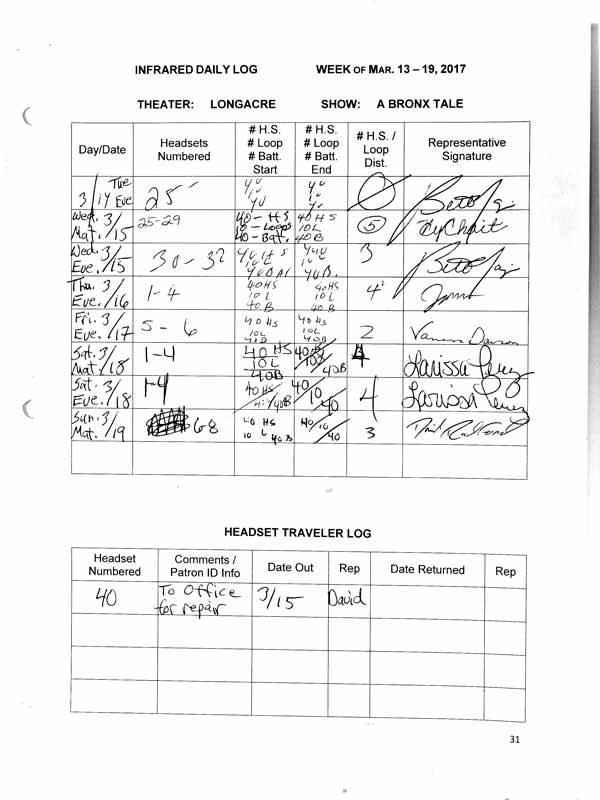 INFRARED DAILY LOG WEEK OF MAR. 13 – 19, 2017
THEATER: LONGACRE SHOW: A BRONX TALE
Day/Date Headsets Numbered # H.S. # Loop # Batt. Start # H.S. # Loop # Batt. End # H.S. / Loop Dist. Representative Signature
Tue 3/14 Eve 25
Wed. 3/15 Mat. 25-29 40-HS 10-Loops 40-Batt. 40HS 10L 40B 5
Wed. 3/15 Eve. 30-32 3
Thu. 3/16 Eve. 1-4 40HS 10L 40B 40HS 10L 40B 4
Fri. 3/17 Eve. 5-6 40HS 10L 40B 40HS 10L 40B 2
Sat. 3/18 Mat. 1-4 40HS 10L 40B 40B 4 Larissa Perez
Sat. 3/18 Eve. 1-4 40HS 40B 40/10/40 4 Larissa Perez
Sun. 3/19 Mat. 6-8 40HS 10L 40B 40/10/40 3
HEADSET TRAVELER LOG
Headset Numbered Comments / Patron ID Info Date Out Rep Date Returned Rep
40 To Office for repair 3/15 David
31